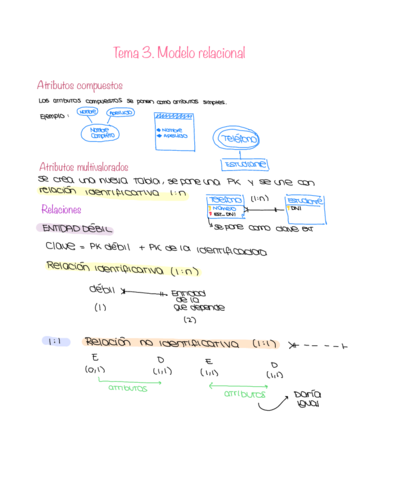 Tema 3. Modelo relacional
Atributos compuestos
Los atributos compuestos se ponen como atributos simples.
Ejemplo:
Nombre
Apellido
Nombre completo
Nombre
Apellido
Teléfono
Estudiante
Atributos multivalorados
Se crea una nueva tabla, se pone una PK y se une con
relación identificativa 1:n
Teléfono
(1:n)
Estudiante
Número
est_DNI
DNI
se pone como clave ext
Relaciones
ENTIDAD DÉBIL
Clave = PK débil + PK de la identificadora
Relación identificativa (1:n)
débil
Entidad
de la
que depende
(1)
(2)
1:1
Relación no identificativa (1:1)
E
D
E
D
(0,1)
(1,1)
(1,1)
(1,1)
atributos
atributos
Daría
igual